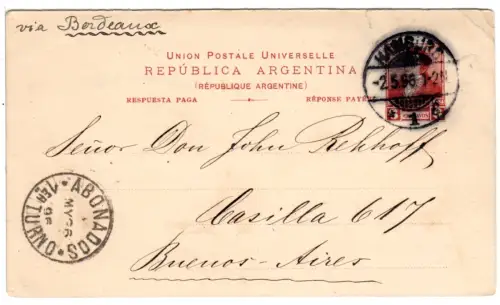 via Bordeaux
UNION POSTALE UNIVERSELLE
REPÚBLICA ARGENTINA
(RÉPUBLIQUE ARGENTINE)
RESPUESTA PAGA RÉPONSE PAYÉE
HAMBURG
-2.5.96.1-2N
* 1 *
Señor Don John Rehhoff
Casilla 617
Buenos-Aires
ABONADOS
MY 26
96
1ER TURNO